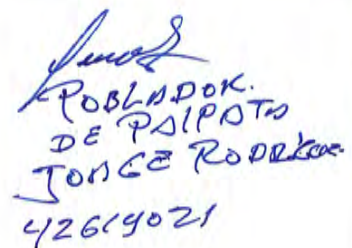 POBLADOR.
DE PALPATA
JORGE RODRÍGUEZ
42619021